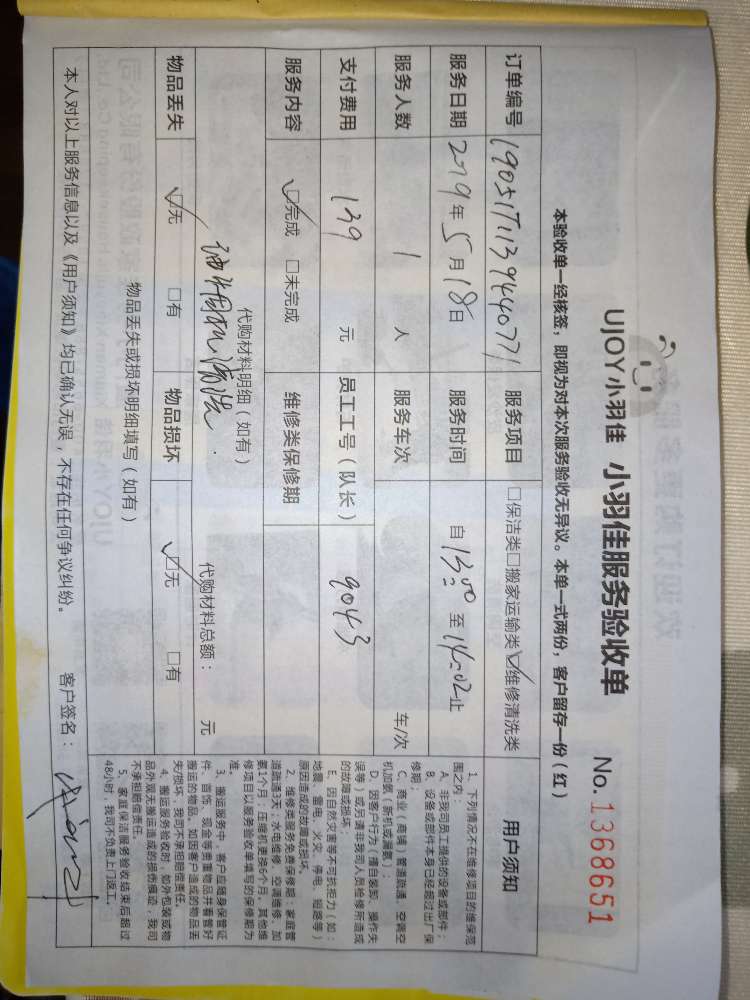 UJOY小羽佳 小羽佳服务验收单
No.1368651
本验收单一经核签，即视为对本次服务验收无异议。本单一式两份，客户留存一份（红）
订单编号 服务项目 □保洁类□搬家运输类☑维修清洗类
服务日期 2019年5月18日 服务时间 自13:00至14:02止
服务人数 1人 服务车次 车/次
支付费用 139元 员工工号（队长） 9043
服务内容 ☑完成 □未完成 维修类保修期
代购材料明细（如有） 代购材料总额： 元
油烟机清洗.
物品丢失 ☑无 □有 物品损坏 ☑无 □有
物品丢失或损坏明细填写（如有）
本人对以上服务信息以及《用户须知》均已确认无误，不存在任何争议纠纷。 客户签名：
用户须知
1、下列情况不在维修项目的维保范
围之内：
A、非我司员工提供的设备或部件；
B、设备或部件本身已经超过出厂保
修期；
C、商业（商铺）管道疏通、空调空
机加氨（新机或漏氨）；
D、因客户行为（擅自装卸、操作失
误等）或另请非我司人员检修所造成
的故障或损坏；
E、因自然灾害等不可抗拒力（如：
地震、雷电、火灾、停电、短路等）
原因造成的故障或损坏。
2、维修类服务免费保修期：家庭管
道疏通3天；水电维修、空调维修、加
氨1个月；压缩机更换6个月，其他维
修项目以服务验收单填写的保修期为
准。
3、搬运服务中，客户应随身保管证
件、首饰、现金等贵重物品并看管好
搬运的物品，如因客户造成的物品丢
失/损坏，我司不承担赔偿责任。
4、搬运服务验收时，如外包装或物
品外观无搬运造成的损伤痕迹，我司
不承担赔偿责任。
5、家庭保洁服务验收结束后超过
48小时，我司不负责上门返工。